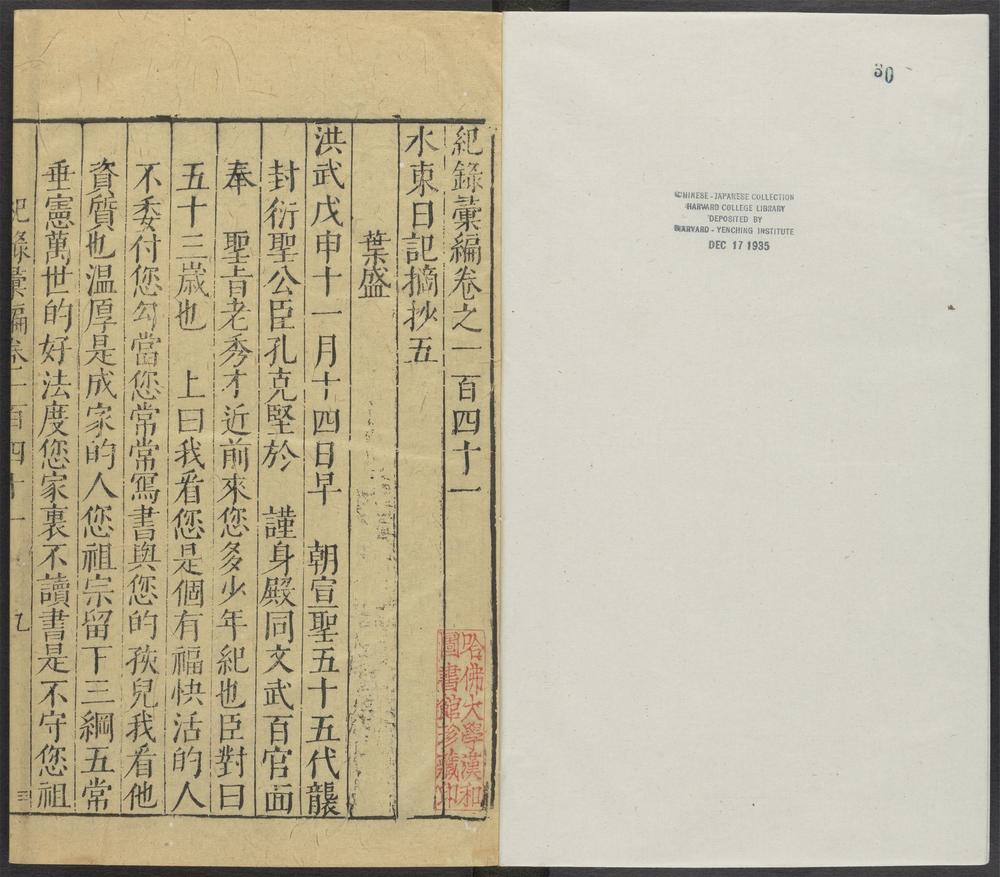 紀錄彙編卷之一百四十一
水東日記摘抄五
葉盛
洪武戊申十一月十四日早　朝宣聖五十五代襲
封衍聖公臣孔克堅於　謹身殿同文武百官面
奉　聖旨老秀才近前來您多少年紀也臣對曰
五十三歲也　上曰我看您是個有福快活的人
不委付您勾當您常常寫書與您的孩兒我看他
資質也溫厚是成家的人您祖宗留下三綱五常
垂憲萬世的好法度您家裏不讀書是不守您祖
紀錄彙編卷一百四十一　九
哈佛大學漢和
圖書館珍藏印
30
CHINESE-JAPANESE COLLECTION
HARVARD COLLEGE LIBRARY
DEPOSITED BY
HARVARD-YENCHING INSTITUTE
DEC 17 1935